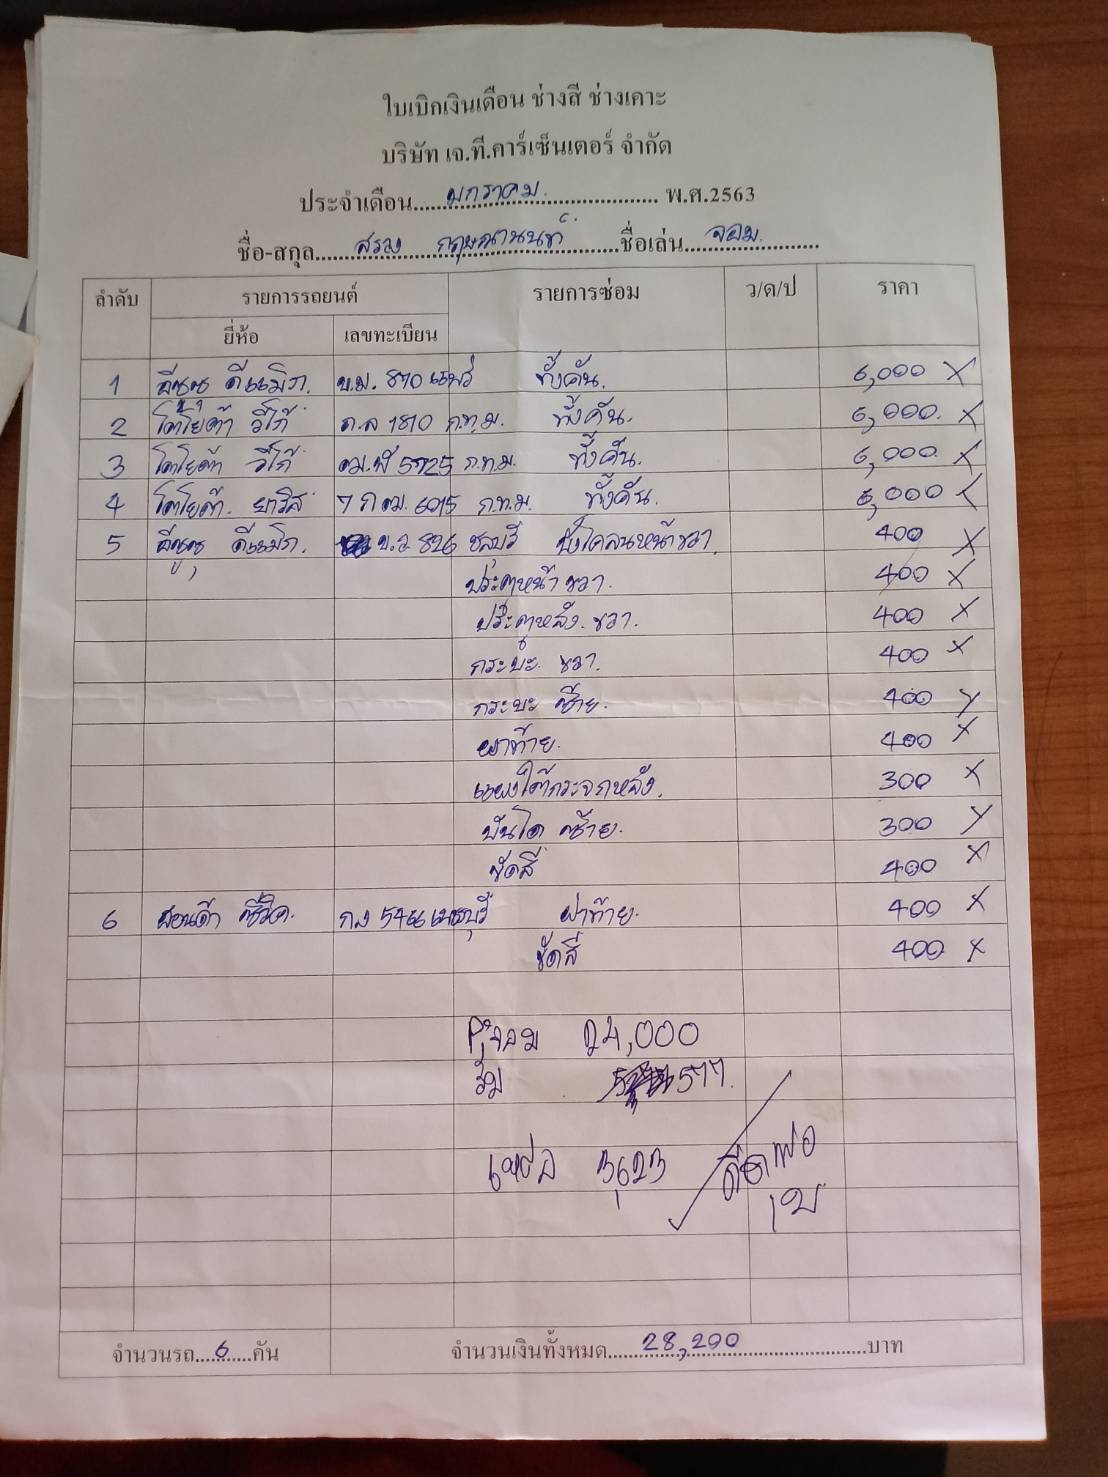 ใบเบิกเงินเดือน ช่างสี ช่างเคาะ
บริษัท เจ.ที.คาร์เซ็นเตอร์ จำกัด
ประจำเดือน.....มกราคม..... พ.ศ.2563
ชื่อ-สกุล.....กฤษณานนท์.....ชื่อเล่น.....จอม.....
ลำดับ รายการรถยนต์ รายการซ่อม ว/ด/ป ราคา
ยี่ห้อ เลขทะเบียน
1 อีซูซุ ดีแม็ก. บ.ม. 870 แพร่ ทั้งคัน. 6,000 X
2 โตโยต้า วีโก้ 1810 ก.ท.ม. ทั้งคัน. 6,000. X
3 โตโยต้า วีโก้ 5925 ก.ท.ม. ทั้งคัน. 6,000. X
4 โตโยต้า. ยาริส 7 ก 6015 ก.ท.ม. ทั้งคัน. 6,000 X
5 อีซูซุ ดีแม็ก. 826 ชลบุรี บังโคลนหน้าขวา. 400 X
ประตูหน้า ขวา. 400 X
ประตูหลัง. ขวา. 400 X
กระบะ. ขวา. 400 X
กระบะ ซ้าย. 400 X
ฝาท้าย. 400 X
แผงใต้กระจกหลัง. 300 X
บันได ซ้าย. 300 X
ขัดสี 400 X
6 ฮอนด้า ซีวิค. ฝาท้าย. 400 X
ขัดสี 400 X
P.จอม 24,000
577.
เหลือ 3623
จำนวนรถ....6....คัน จำนวนเงินทั้งหมด.....28,200.....บาท